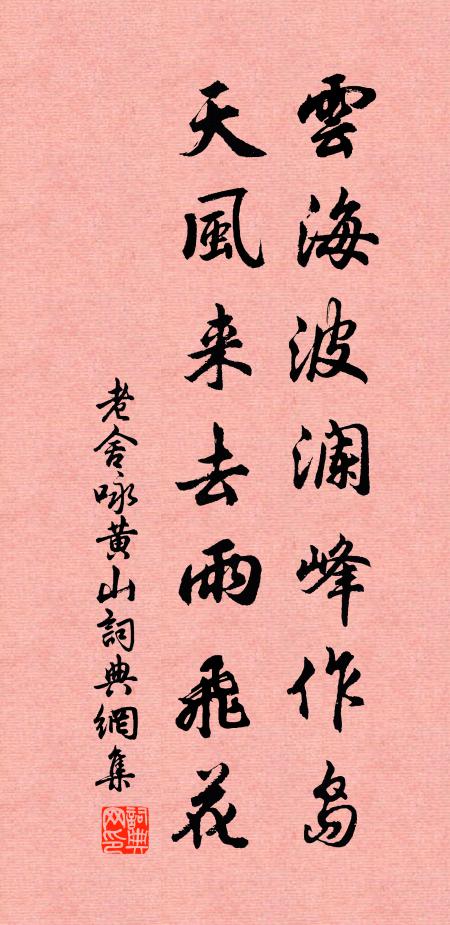 雲海波瀾峰作岛
天風来去雨飛花
老舍咏黄山詞典網集
詞典网印